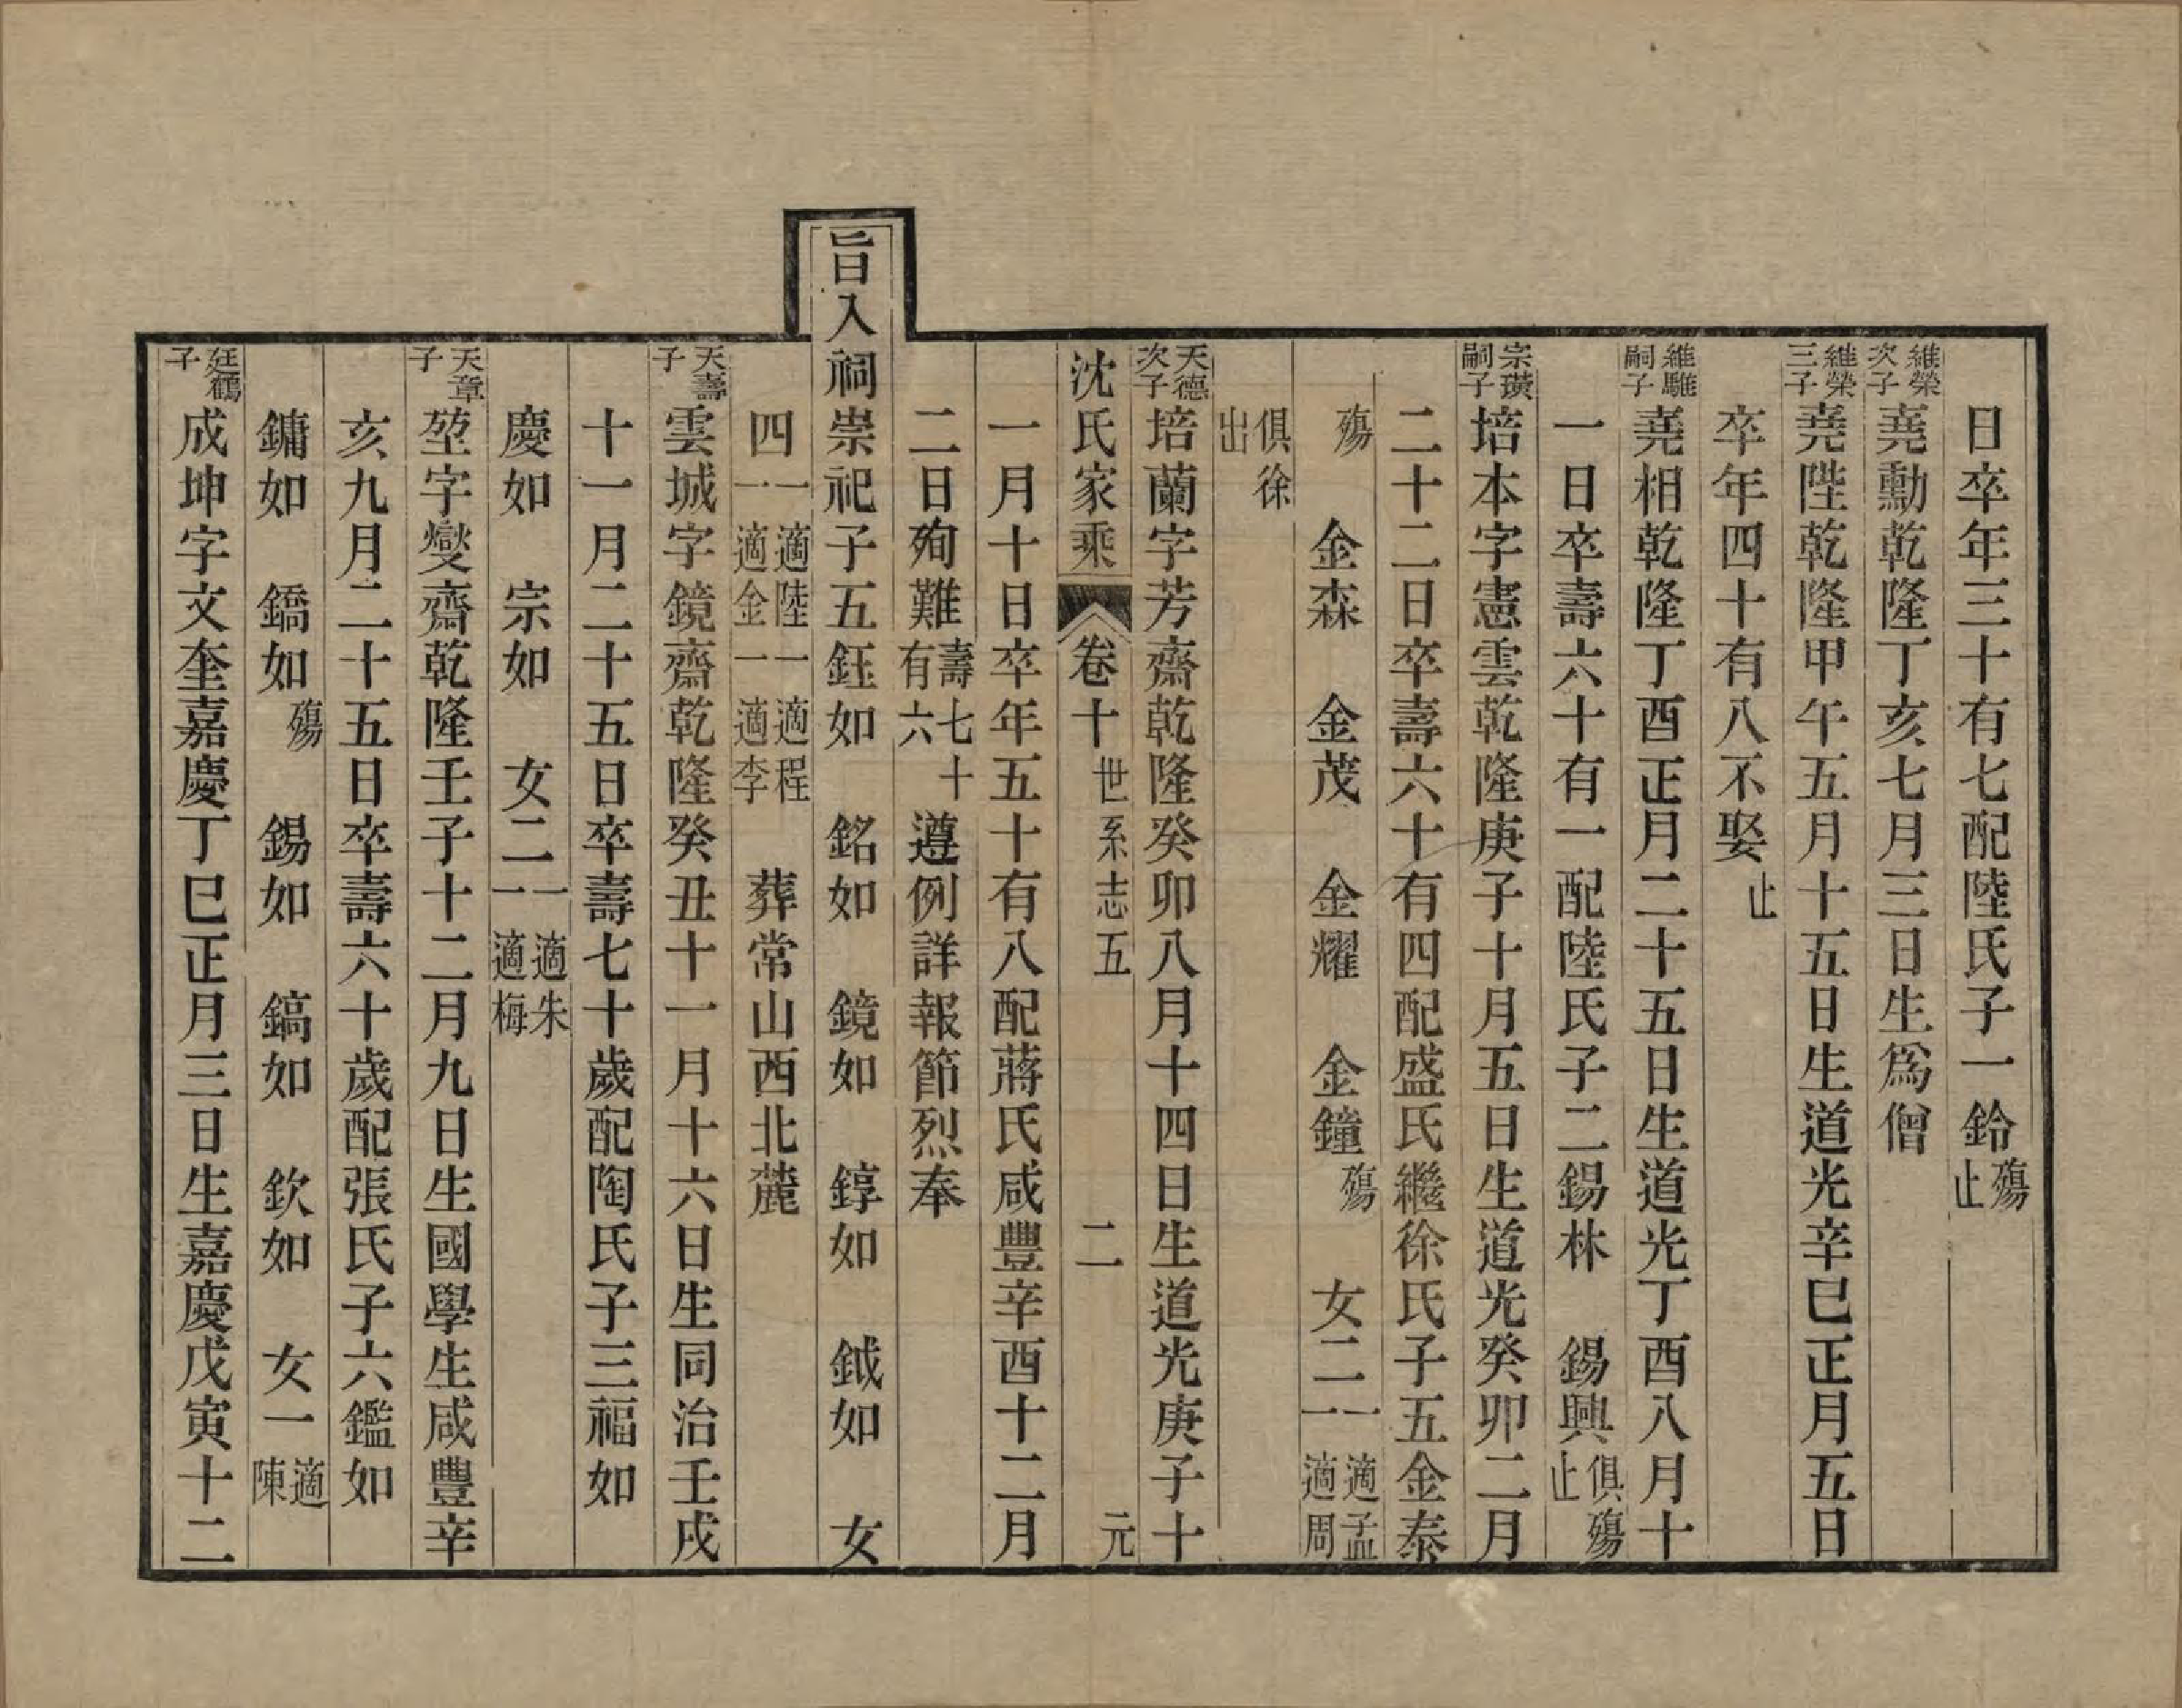 日卒年三十有七配陸氏子一鈴殤止
維榮次子堯勳乾隆丁亥七月三日生爲僧
維榮三子堯陛乾隆甲午五月十五日生道光辛巳正月五日
卒年四十有八不娶止
維騅嗣子堯相乾隆丁酉正月二十五日生道光丁酉八月十
一日卒壽六十有一配陸氏子二錫林 錫興俱殤止
宗璜嗣子培本字憲雲乾隆庚子十月五日生道光癸卯二月
二十二日卒壽六十有四配盛氏繼徐氏子五金泰
殤 金森 金茂 金耀 金鐘殤 女二一適孟一適周
俱徐出
天德次子培蘭字芳齋乾隆癸卯八月十四日生道光庚子十
沈氏家乘 卷十 世系志五 二 元
一月十日卒年五十有八配蔣氏咸豐辛酉十二月
二日殉難壽七十有六遵例詳報節烈奉
旨入祠崇祀子五鈺如 銘如 鏡如 錞如 鉞如 女
四一適陸一適程一適金一適李 葬常山西北麓
天壽子雲城字鏡齋乾隆癸丑十一月十六日生同治壬戌
十一月二十五日卒壽七十歲配陶氏子三福如
慶如 宗如 女二一適朱一適梅
天章子堃字燮齋乾隆壬子十二月九日生國學生咸豐辛
亥九月二十五日卒壽六十歲配張氏子六鑑如
鏞如 鐈如殤 錫如 鎬如 欽如 女一適陳
廷鶴子成坤字文奎嘉慶丁巳正月三日生嘉慶戊寅十二